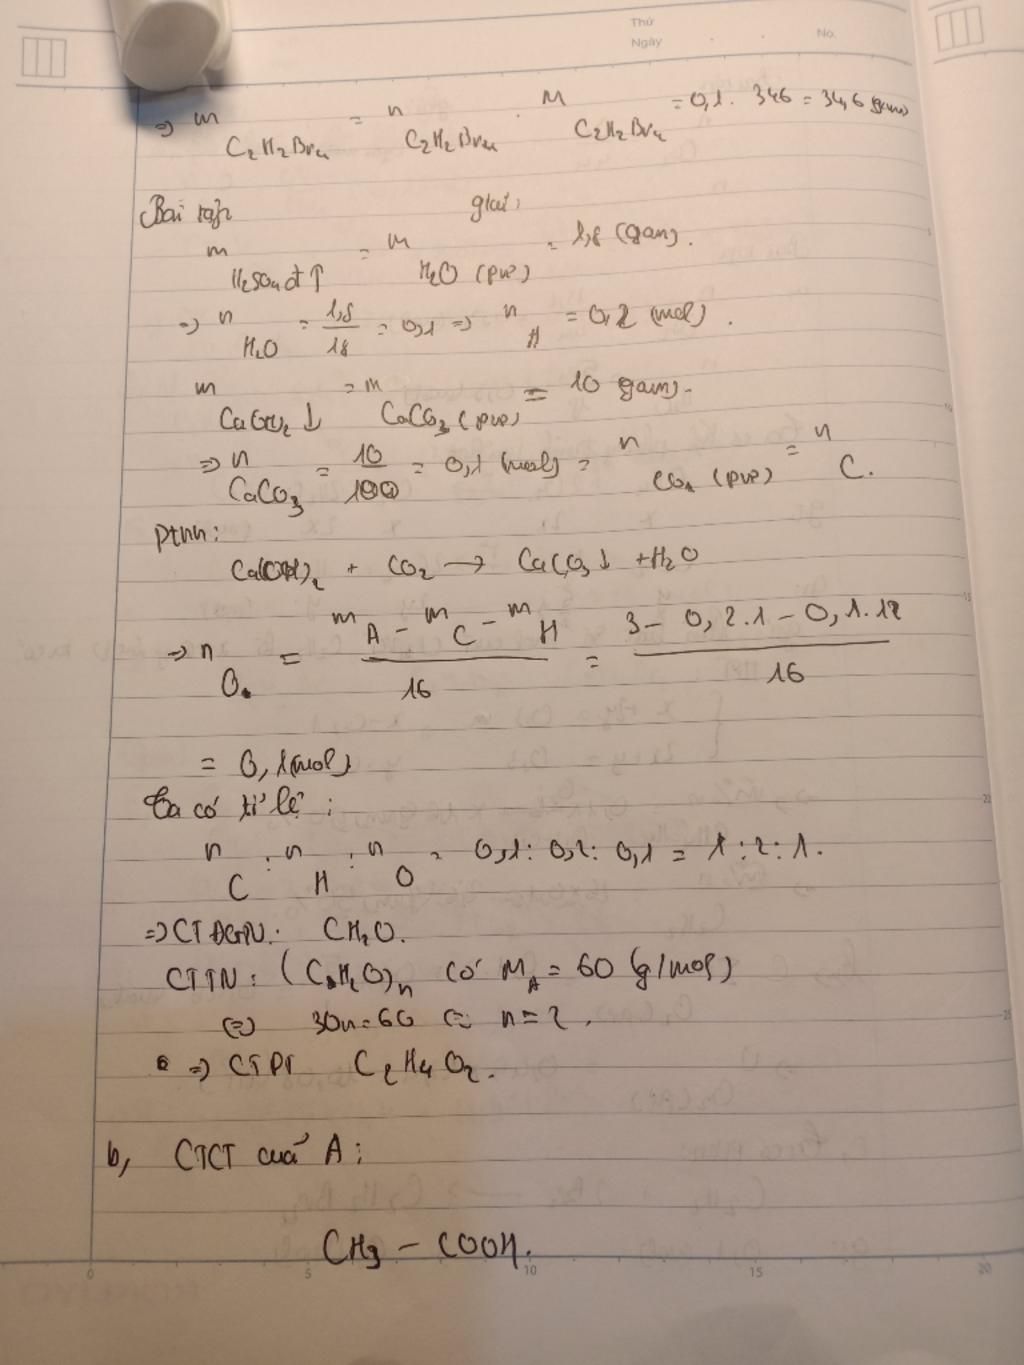 Thứ
Ngày
No.
=> m C₂H₂Br₄ = n C₂H₂Br₄ . M C₂H₂Br₄ = 0,1 . 346 = 34,6 (gam)
Bài tập giải:
m H₂SO₄ đ ↑ = m H₂O (pư) = 1,8 (gam).
=> n H₂O = 1,8/18 = 0,1 => n H = 0,2 (mol).
m ↓ = m CaCO₃ (pư) = 10 gam).
=> n CaCO₃ = 10/100 = 0,1 (mol) = n CO₂ (pư) = n C.
Ptnn:
Ca(OH)₂ + CO₂ → CaCO₃↓ + H₂O
=> n O = (m A - m C - m H)/16 = (3 - 0,2.1 - 0,1.12)/16
= 0,1(mol)
Ta có tỉ lệ:
n C : n H : n O = 0,1 : 0,2 : 0,1 = 1 : 2 : 1.
=> CTĐGN: CH₂O.
CTTN: (CH₂O)n có M A = 60 (g/mol)
(=) 30n=60 (=) n=2.
=> CTPT C₂H₄O₂.
b, CTCT cuả A:
CH₃ - COOH.
0 5 10 15 20